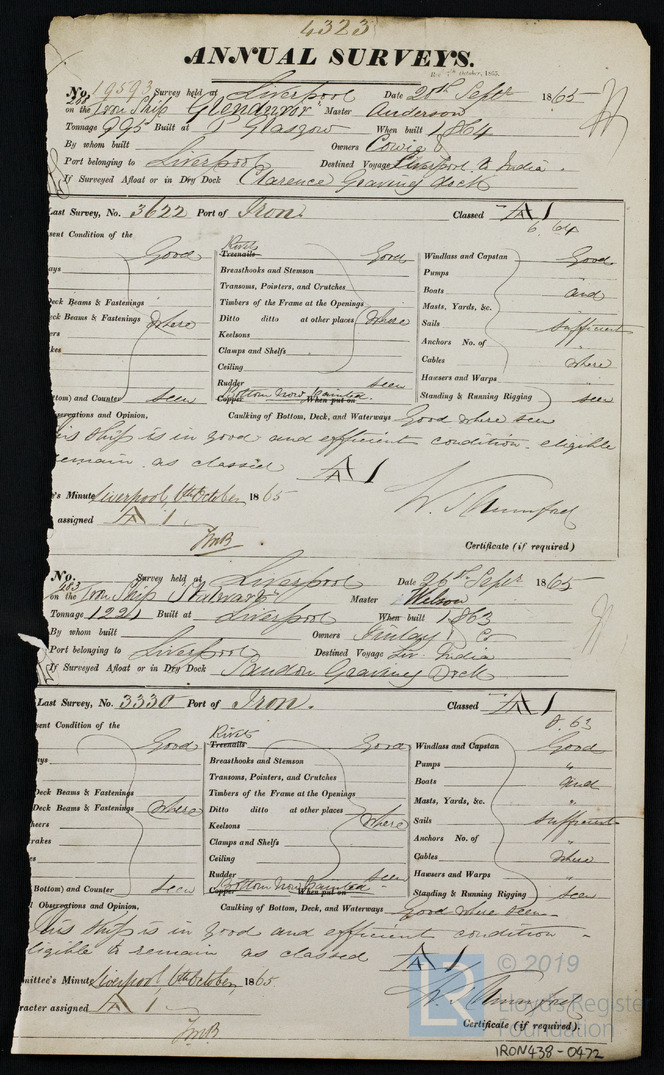 4323
ANNUAL SURVEYS.
Rd 7th October, 1865.
No. 19593 Survey held at Liverpool Date 20th Sepr 1865
on the Iron Ship "Glendower" Master Anderson
Tonnage 995 Built at P Glasgow When built 1864
By whom built Owners Cowie &
Port belonging to Liverpool Destined Voyage Liverpool to India.
If Surveyed Afloat or in Dry Dock Clarence Graving dock
Last Survey, No. 3622 Port of Iron. Classed A 1
6. 64
sent Condition of the Rivets
Good Treenails Good Windlass and Capstan Good
ays Breasthooks and Stemson Pumps "
Transoms, Pointers, and Crutches Boats and
Deck Beams & Fastenings Timbers of the Frame at the Openings Masts, Yards, &c. "
ck Beams & Fastenings where Ditto ditto at other places where Sails sufficient
ers Keelsons Anchors No. of "
kes Clamps and Shelfs Cables where
Ceiling Hawsers and Warps "
Rudder seen
ttom) and Counter seen Copper Bottom now painted. When put on Standing & Running Rigging seen
servations and Opinion, Caulking of Bottom, Deck, and Waterways Good where seen
his Ship is in good and efficient condition. eligible
remain as classed A 1
e's Minute Liverpool, 6th October 1865
assigned A 1
Certificate (if required)
No. 283 Survey held at Liverpool Date 26th Sepr 1865
on the Iron Ship Stalwart Master Wilson
Tonnage 1221 Built at Liverpool When built 1863
By whom built Owners Finlay & Co
Port belonging to Liverpool Destined Voyage Liv. India
If Surveyed Afloat or in Dry Dock Sandon Graving Dock
Last Survey, No. 3330 Port of Iron. Classed A 1
8. 63
sent Condition of the Rivets
Good Treenails Good Windlass and Capstan Good
ays Breasthooks and Stemson Pumps "
Transoms, Pointers, and Crutches Boats and
Deck Beams & Fastenings Timbers of the Frame at the Openings Masts, Yards, &c. "
Deck Beams & Fastenings where Ditto ditto at other places Sails sufficient
heers Keelsons where Anchors No. of "
rakes Clamps and Shelfs Cables where
es Ceiling Hawsers and Warps "
Rudder seen
Bottom) and Counter seen Copper Bottom now painted. When put on Standing & Running Rigging seen
l Observations and Opinion, Caulking of Bottom, Deck, and Waterways Good where seen
This Ship is in good and efficient condition -
ligible to remain as classed A 1
mittee's Minute Liverpool, 6th October, 1865
racter assigned A 1
Certificate (if required).
LR © 2019
Lloyd's Register
Foundation
IRON438-0472